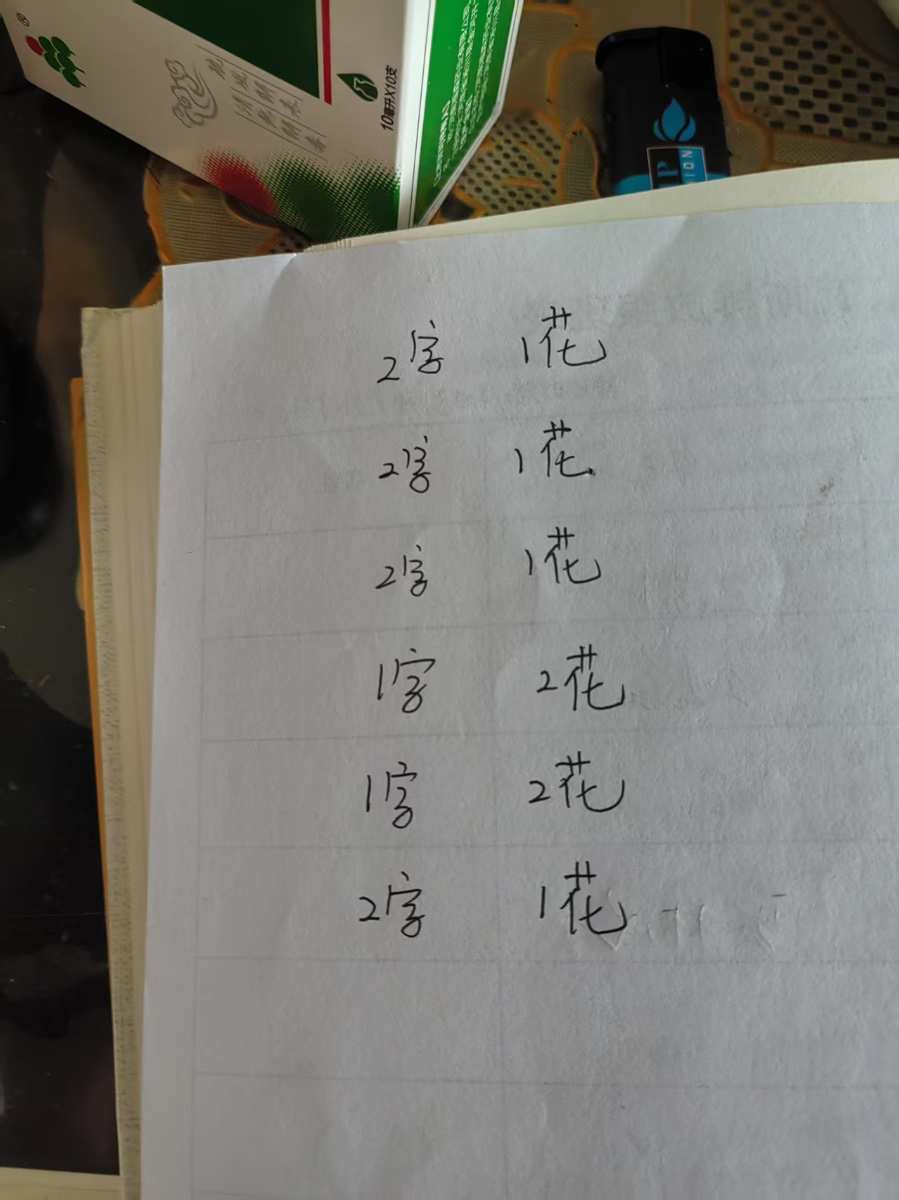 10毫升X10支
2字 1花
2字 1花
2字 1花
1字 2花
1字 2花
2字 1花